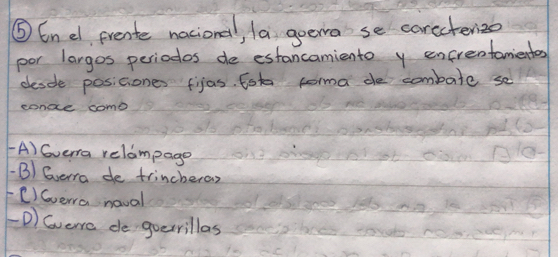 ⑤ En el frente nacional, la guerra se carecterizo
por largos periodos de estancamiento y enfrentamientos
desde posiciones fijas. Esta forma de combate se
conoce como
-A) Guerra relámpago
-B) Guerra de trincheras
-C) Guerra naval
-D) Guerra de guerrillas